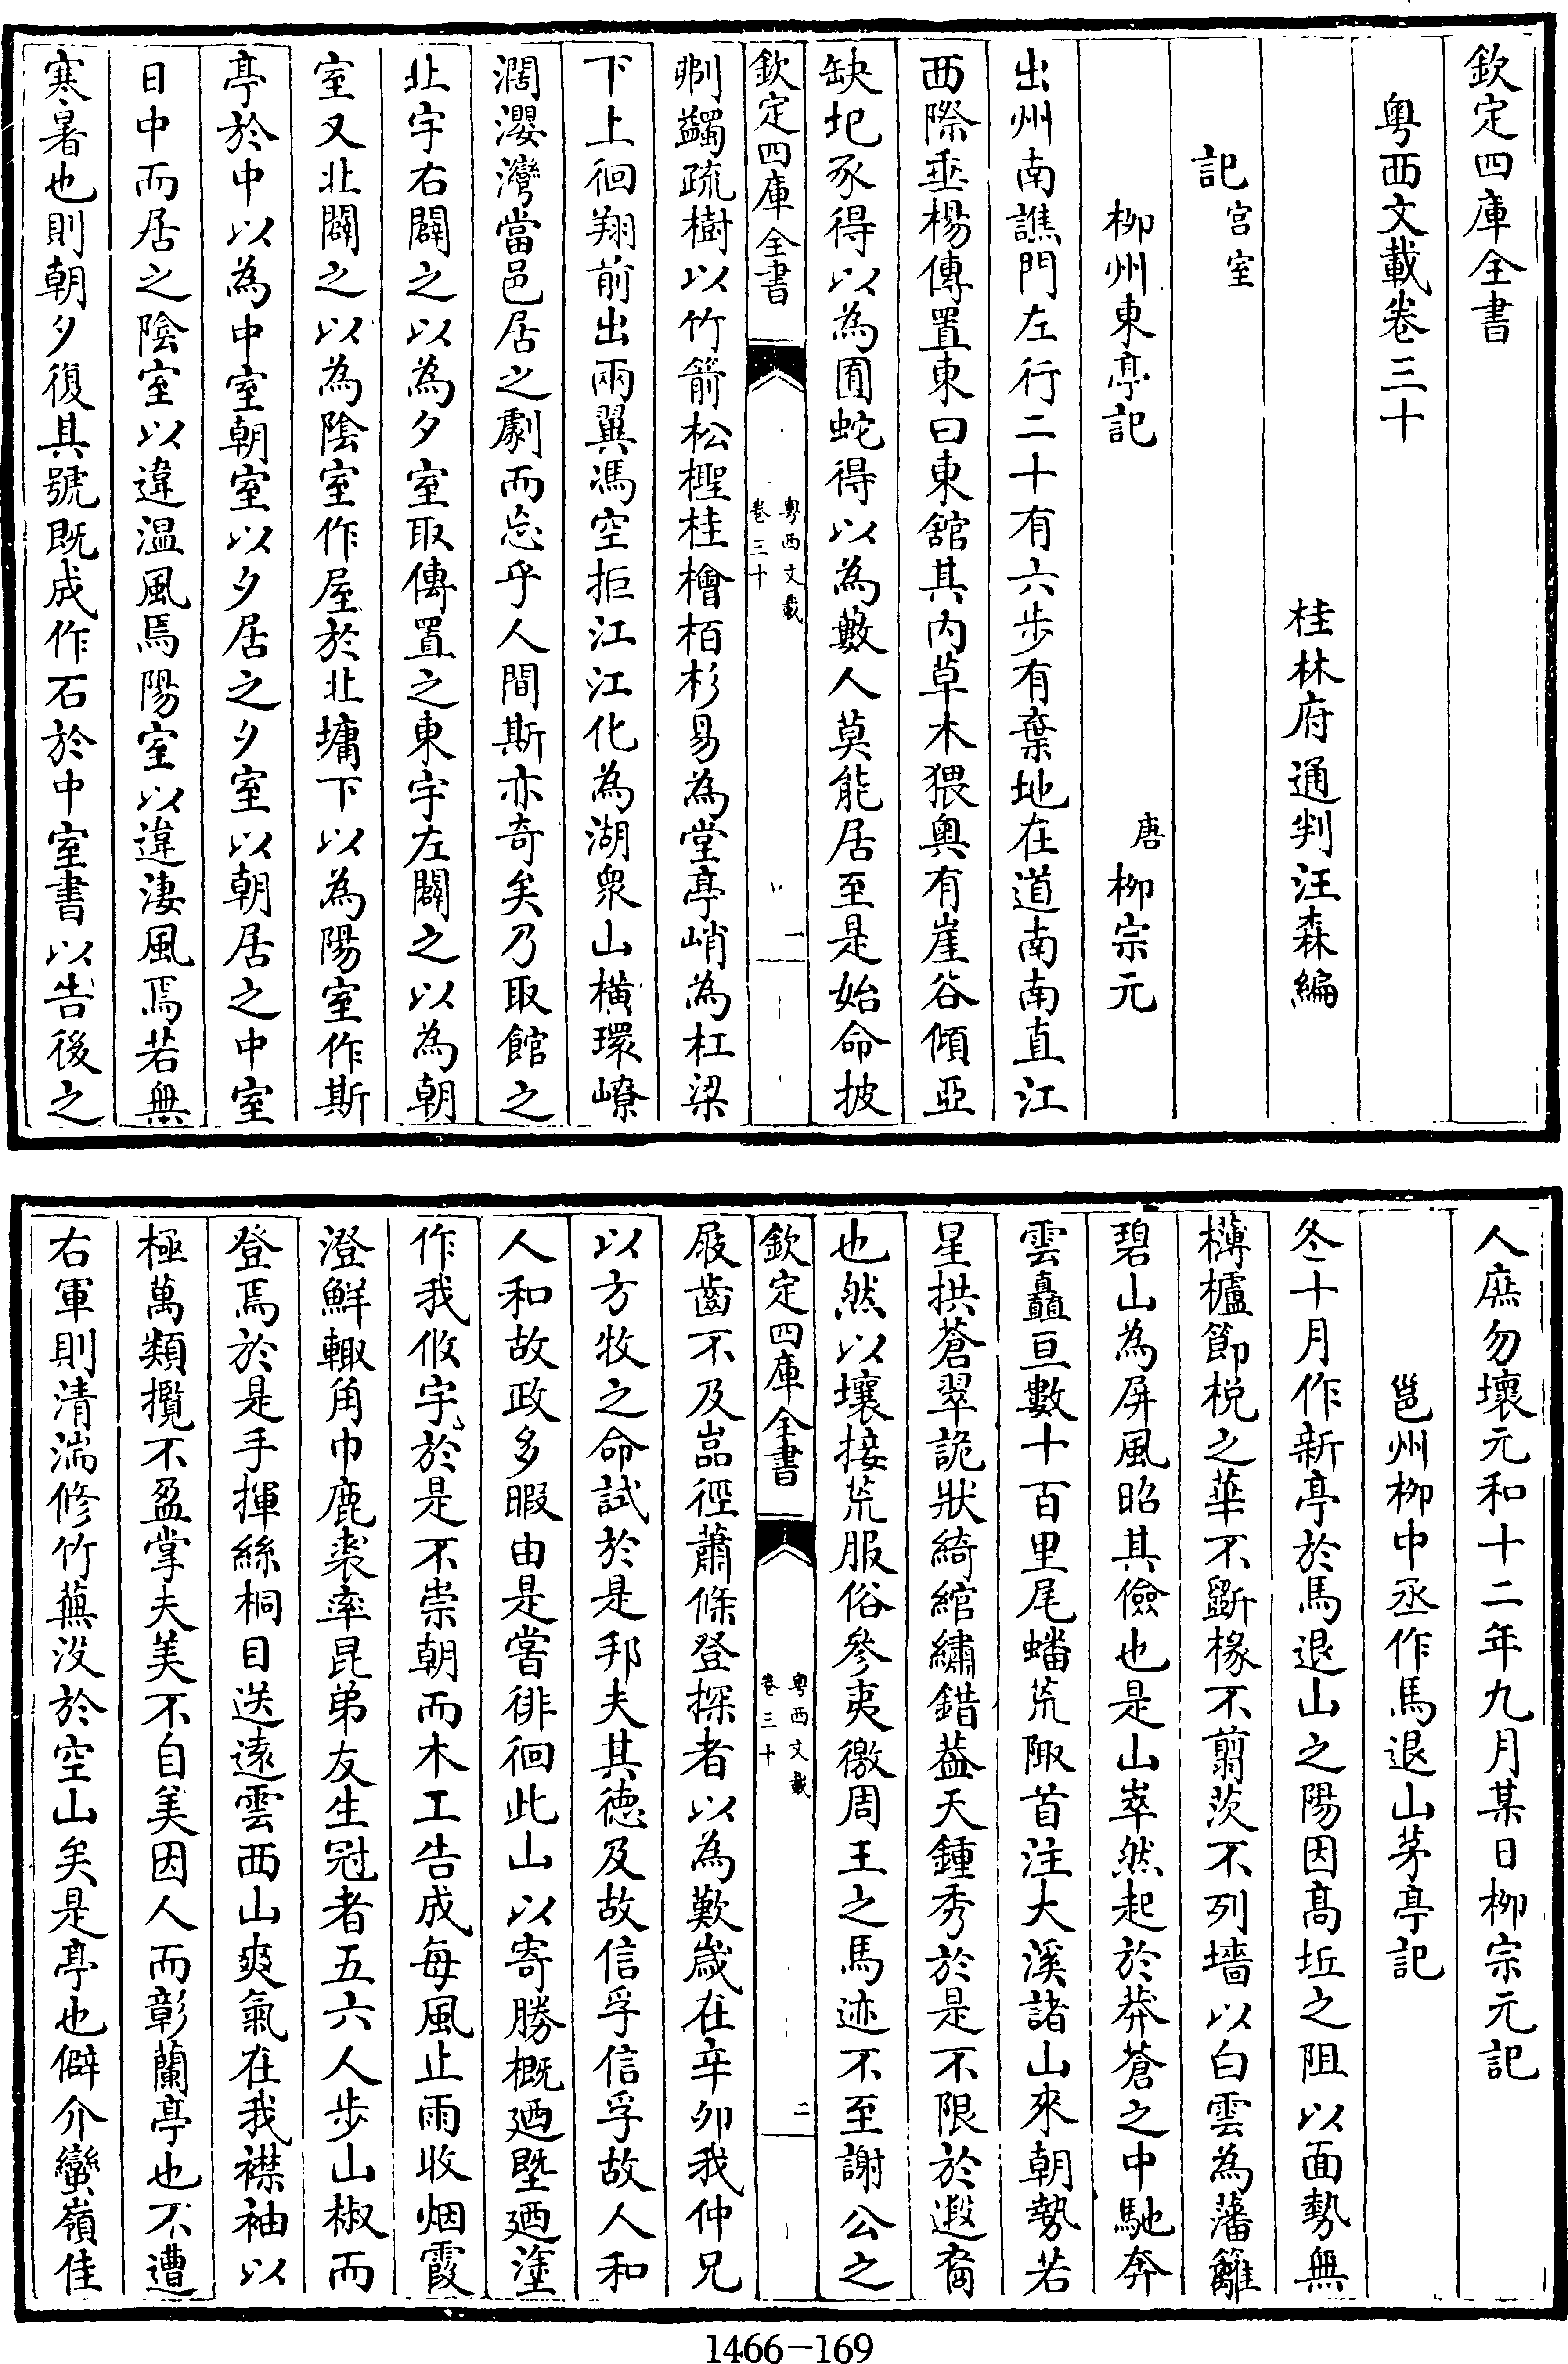 欽定四庫全書
粤西文載卷三十
桂林府通判汪森編
記宫室
柳州東亭記
唐柳宗元
出州南譙門左行二十有六步有棄地在道南南直江
西際垂楊傳置東曰東舘其内草木猥奥有崖谷傾亞
缺圮豕得以為囿蛇得以為藪人莫能居至是始命披
欽定四庫全書
粤西文載
卷三十
一
刜蠲疏樹以竹箭松檉桂檜栢杉易為堂亭峭為杠梁
下上徊翔前出兩翼馮空拒江江化為湖衆山橫環嶛
濶瀴灣當邑居之劇而忘乎人間斯亦奇矣乃取館之
北宇右闢之以為夕室取傳置之東宇左闢之以為朝
室又北闢之以為陰室作屋於北墉下以為陽室作斯
亭於中以為中室朝室以夕居之夕室以朝居之中室
日中而居之陰室以違温風焉陽室以違凄風焉若無
寒暑也則朝夕復其號既成作石於中室書以告後之
人庶勿壞元和十二年九月某日柳宗元記
邕州柳中丞作馬退山茅亭記
冬十月作新亭於馬退山之陽因髙坵之阻以面勢無
欂櫨節梲之華不斲椽不翦茨不列墻以白雲為藩籬
碧山為屏風昭其儉也是山崒然起於莽蒼之中馳奔
雲矗亘數十百里尾蟠荒陬首注大溪諸山來朝勢若
星拱蒼翠詭狀綺綰繡錯葢天鍾秀於是不限於遐裔
也然以壤接荒服俗參夷徼周王之馬迹不至謝公之
欽定四庫全書
粤西文載
卷三十
二
屐齒不及嵓徑蕭條登探者以為歎嵗在辛卯我仲兄
以方牧之命試於是邦夫其德及故信孚信孚故人和
人和故政多暇由是嘗徘徊此山以寄勝概廼塈廼塗
作我攸宇於是不崇朝而木工告成每風止雨收烟霞
澄鮮輙角巾鹿裘率昆弟友生冠者五六人步山椒而
登焉於是手揮絲桐目送遠雲西山爽氣在我襟袖以
極萬類攬不盈掌夫美不自美因人而彰蘭亭也不遭
右軍則清湍修竹蕪没於空山矣是亭也僻介蠻嶺佳
1466-169